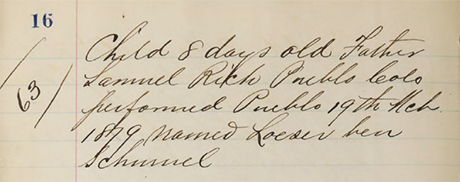 16
63
Child 8 days old Father
Samuel Rich Pueblo Colo
performed Pueblo 19th Mch
1879, named Loeser ben
Schmuel